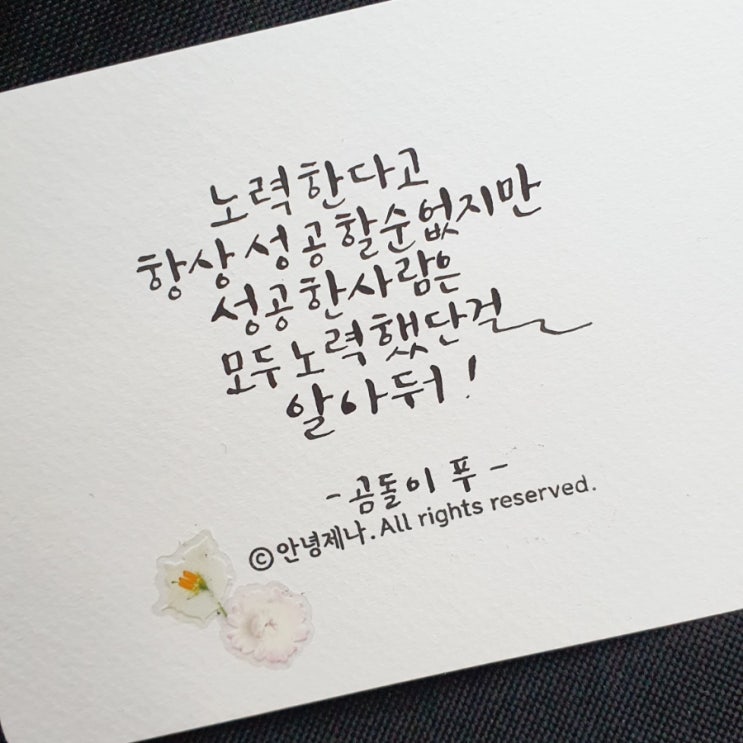 노력한다고
항상 성공할순 없지만
성공한사람은
모두 노력했단걸
알아둬!
- 곰돌이 푸 -
©안녕제나. All rights reserved.